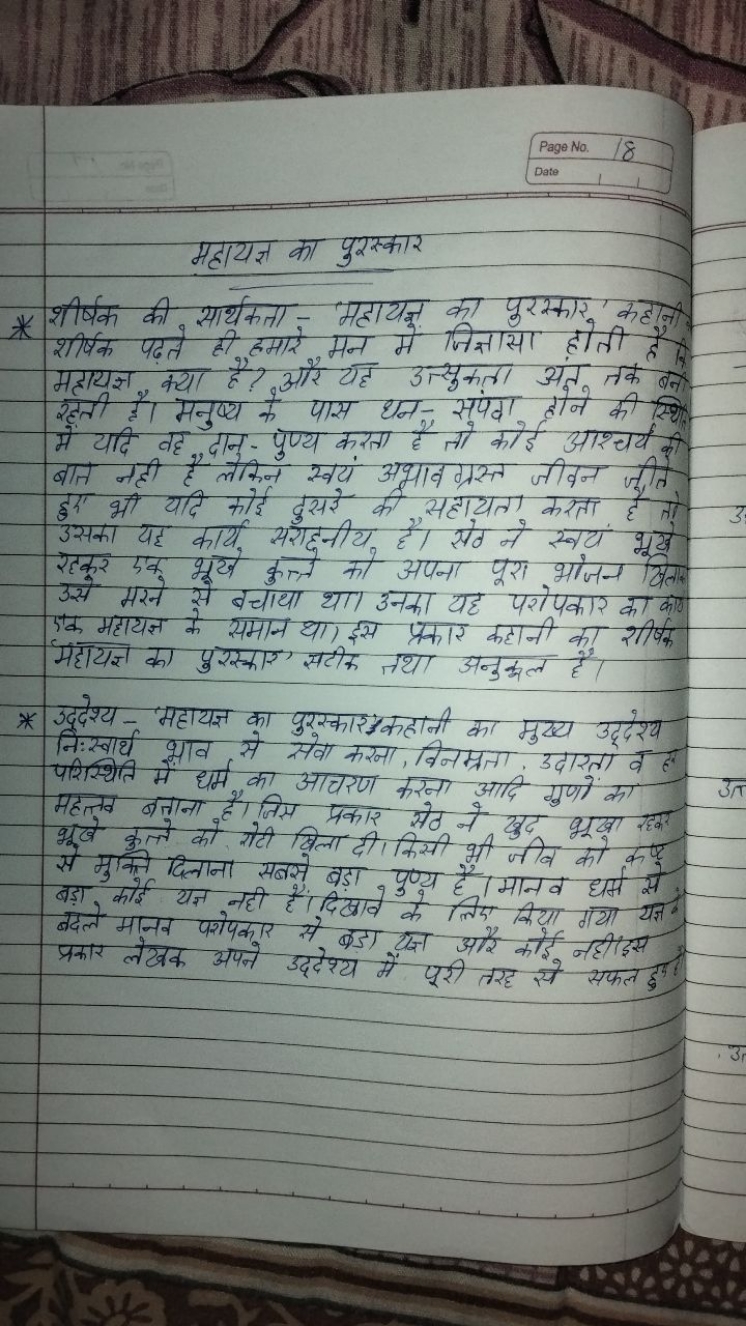 Page No. 18
Date
महायज्ञ का पुरस्कार
* शीर्षक की सार्थकता - 'महायज्ञ का पुरस्कार' कहानी
शीर्षक पढ़ते ही हमारे मन में जिज्ञासा होती है कि
महायज्ञ क्या है? और यह उत्सुकता अंत तक बनी
रहती है। मनुष्य के पास धन-संपदा होने की स्थिति
में यदि वह दान-पुण्य करता है तो कोई आश्चर्य की
बात नही है लेकिन स्वयं अभावग्रस्त जीवन जीते
हुए भी यदि कोई दुसरे की सहायता करता है तो
उसका यह कार्य सराहनीय है। सेठ ने स्वयं भूखे
रहकर एक भूखे कुत्ते को अपना पूरा भोजन
उसे मरने से बचाया था। उनका यह परोपकार का कार्य
एक महायज्ञ के समान था। इस प्रकार कहानी का शीर्षक
'महायज्ञ का पुरस्कार' सटीक तथा अनुकूल है।
* उद्देश्य - 'महायज्ञ का पुरस्कार' कहानी का मुख्य उद्देश्य
निःस्वार्थ भाव से सेवा करना, विनम्रता, उदारता व हर
परिस्थिति में धर्म का आचरण करना आदि गुणों का
महत्तव बताना है। जिस प्रकार सेठ ने खुद भूखा रहकर
भूखे कुत्ते को रोटी खिला दी। किसी भी जीव को कष्ट
से मुक्ति दिलाना सबसे बड़ा पुण्य है। मानव धर्म से
बड़ा कोई यज्ञ नही है। दिखावे के लिए किया गया यज्ञ के
बदले मानव परोपकार से बड़ा यज्ञ और कोई नही। इस
प्रकार लेखक अपने उद्देश्य में पूरी तरह से सफल हुए है।